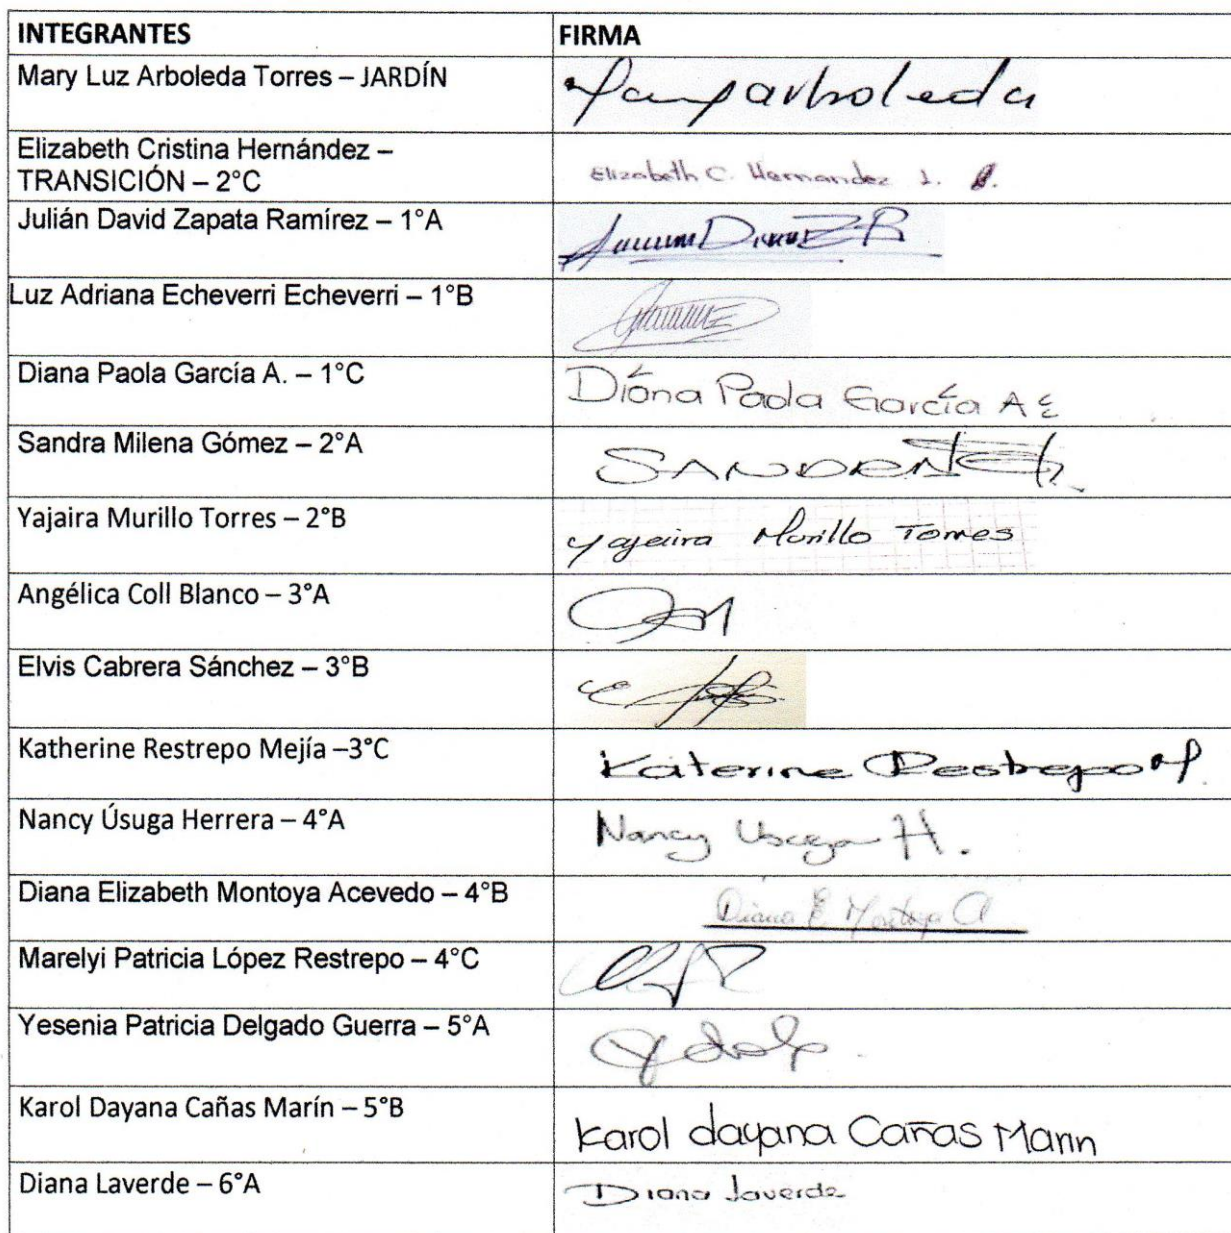 INTEGRANTES FIRMA
Mary Luz Arboleda Torres – JARDÍN arboleda
Elizabeth Cristina Hernández –
TRANSICIÓN – 2°C Elizabeth C. Hernandez J.
Julián David Zapata Ramírez – 1°A
Luz Adriana Echeverri Echeverri – 1°B
Diana Paola García A. – 1°C Diana Paola García A
Sandra Milena Gómez – 2°A
Yajaira Murillo Torres – 2°B Yajaira Murillo Torres
Angélica Coll Blanco – 3°A
Elvis Cabrera Sánchez – 3°B
Katherine Restrepo Mejía –3°C Katerine Restrepo M.
Nancy Úsuga Herrera – 4°A Nancy Usuga H.
Diana Elizabeth Montoya Acevedo – 4°B Diana E Montoya A
Marelyi Patricia López Restrepo – 4°C
Yesenia Patricia Delgado Guerra – 5°A
Karol Dayana Cañas Marín – 5°B Karol dayana Cañas Marin
Diana Laverde – 6°A Diana Laverde